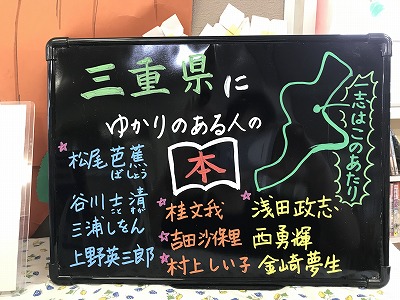 三重県に
ゆかりのある人の
本
一志はこのあたり
松尾芭蕉
ばしょう
谷川士清
ことすが
三浦しをん
上野英三郎
桂文我
吉田沙保里
村上しい子
浅田政志
西勇輝
金崎夢生